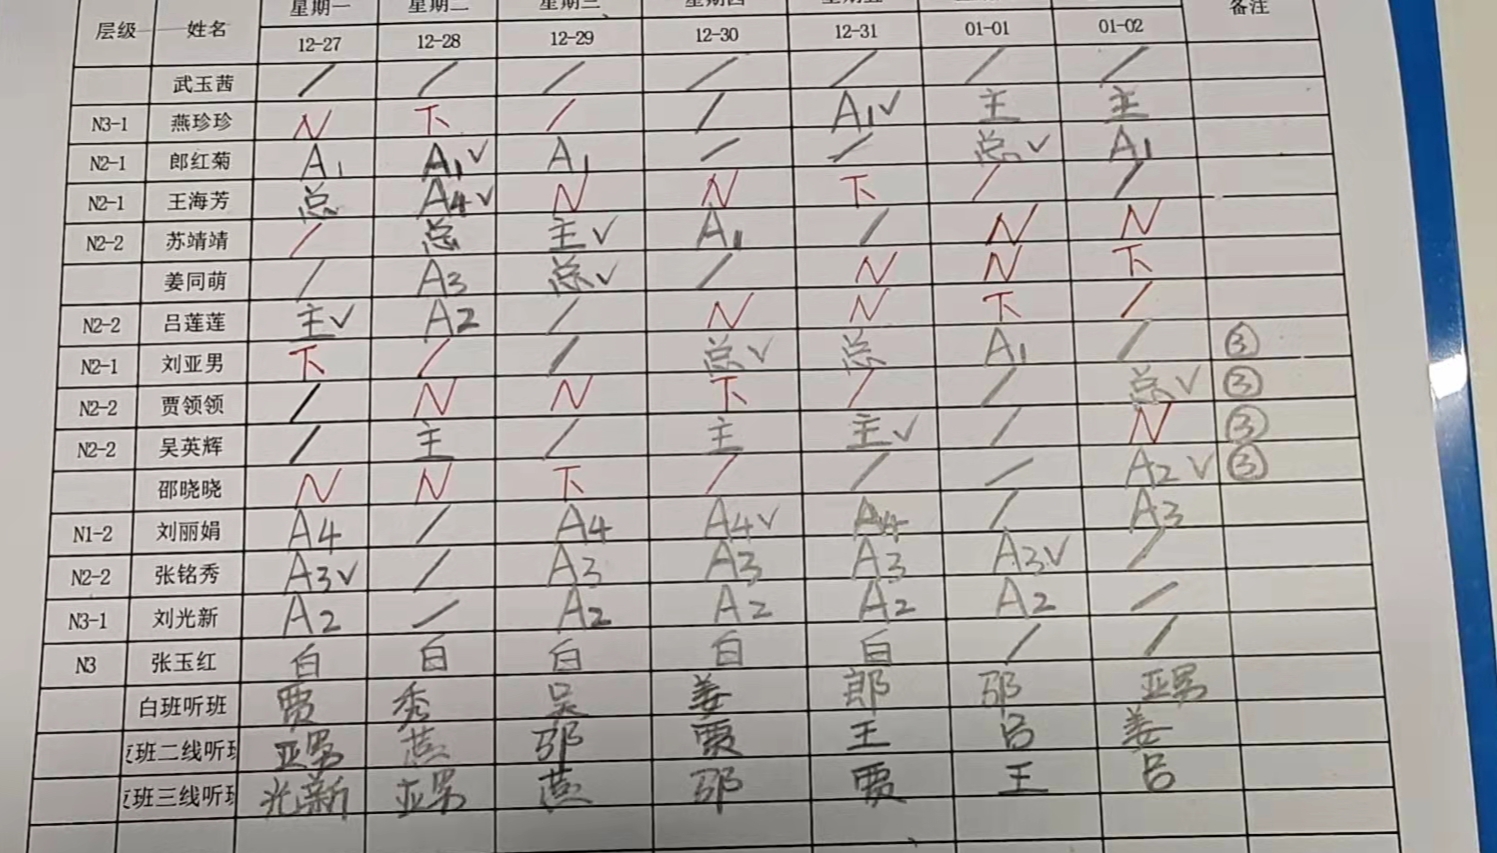 层级 姓名 星期一 星期二 星期三 星期四 星期五 备注
12-27 12-28 12-29 12-30 12-31 01-01 01-02
武玉茜 / / / / / / /
N3-1 燕珍珍 N 下 / / A1√ 主 主
N2-1 郎红菊 A1 A1√ A1 / / 总√ A1
N2-1 王海芳 总 A4√ N N 下 / /
N2-2 苏靖靖 / 总 主√ A1 / N N
姜同萌 / A3 总√ / N N 下
N2-2 吕莲莲 主√ A2 / N N 下 /
N2-1 刘亚男 下 / / 总√ 总 A1 / ③
N2-2 贾领领 / N N 下 / / 总√ ③
N2-2 吴英辉 / 主 / 主 主√ / N ③
邵晓晓 N N 下 / / / A2√ ③
N1-2 刘丽娟 A4 / A4 A4√ A4 / A3
N2-2 张铭秀 A3√ / A3 A3 A3 A3√ /
N3-1 刘光新 A2 / A2 A2 A2 A2 /
N3 张玉红 白 白 白 白 白 / /
白班听班 贾 秀 吴 姜 郎 邵 亚男
班二线听班 亚男 燕 邵 贾 王 吕 姜
班三线听班 光新 亚男 燕 邵 贾 王 吕